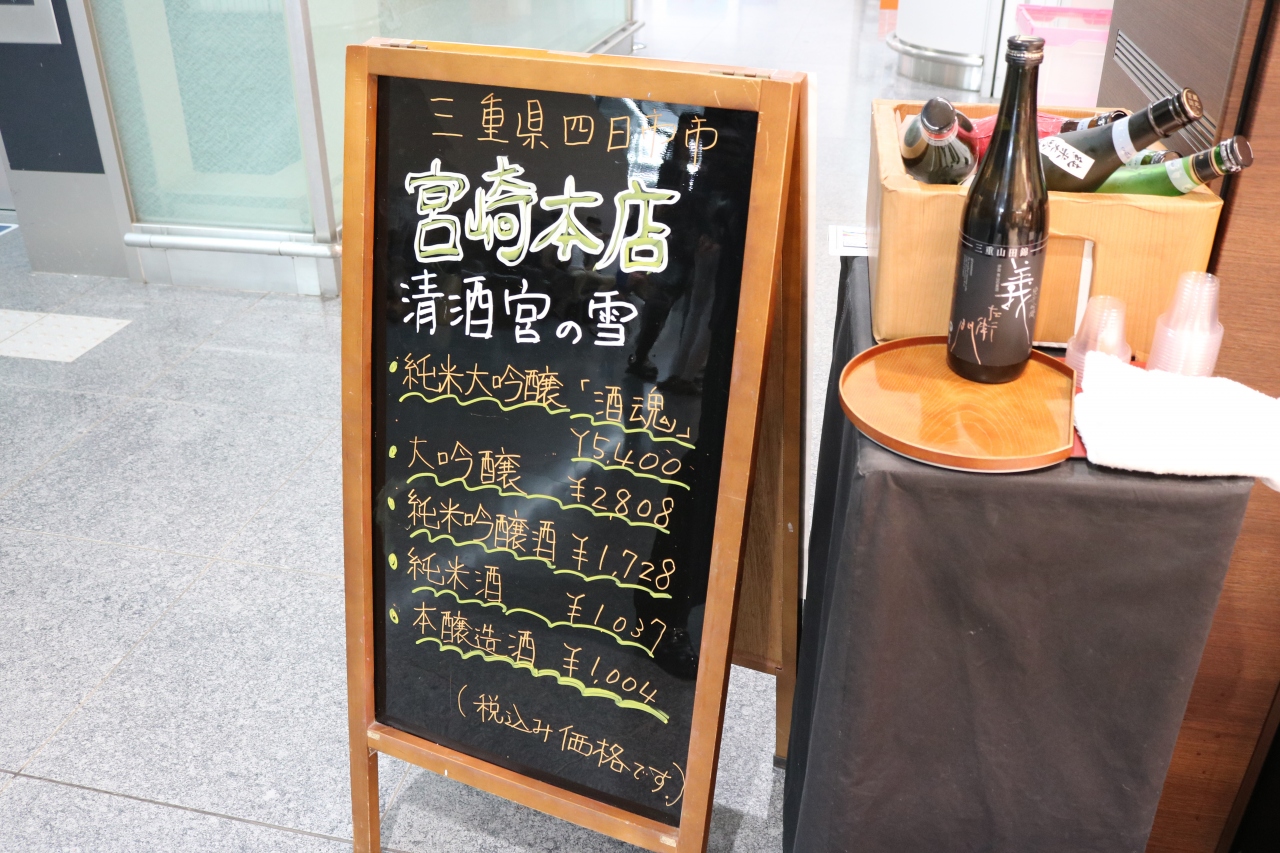 三重県四日市市
宮崎本店
清酒宮の雪
・純米大吟醸「酒魂」
¥5,400
・大吟醸 ¥2,808
・純米吟醸酒 ¥1,728
・純米酒 ¥1,037
・本醸造酒 ¥1,004
(税込み価格です。)
三重山田錦
義
左衛
門